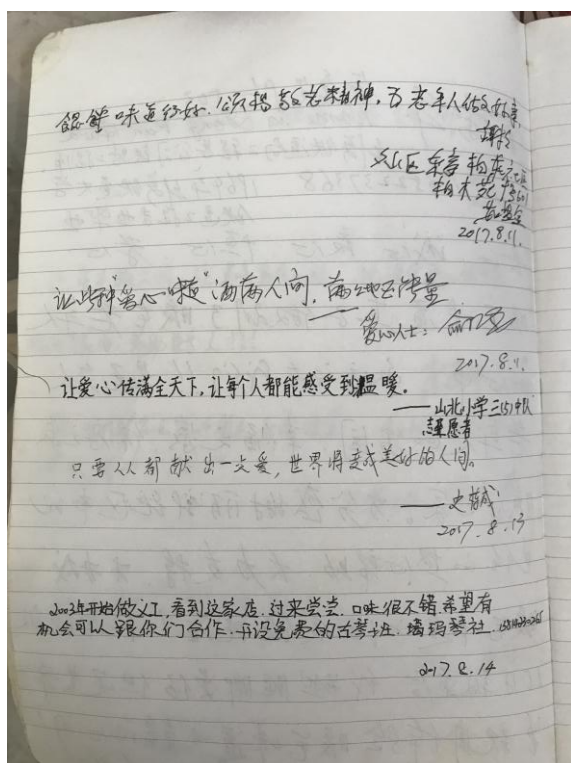 馄饨味道很好，颂扬敬老精神，为老年人做好事，
2017.8.11.
让此种"爱心味道"洒满人间，满地正能量
——爱心人士：
2017.8.11.
让爱心传满全天下，让每个人都能感受到温暖。
——山北小学三(5)中队
志愿者
只要人人都献出一点爱，世界将变成美好的人间。
——史
2017.8.13
2003年开始做义工，看到这家店，过来尝尝，口味很不错，希望有
机会可以跟你们合作，开设免费的古琴班，琴社
2017.8.14